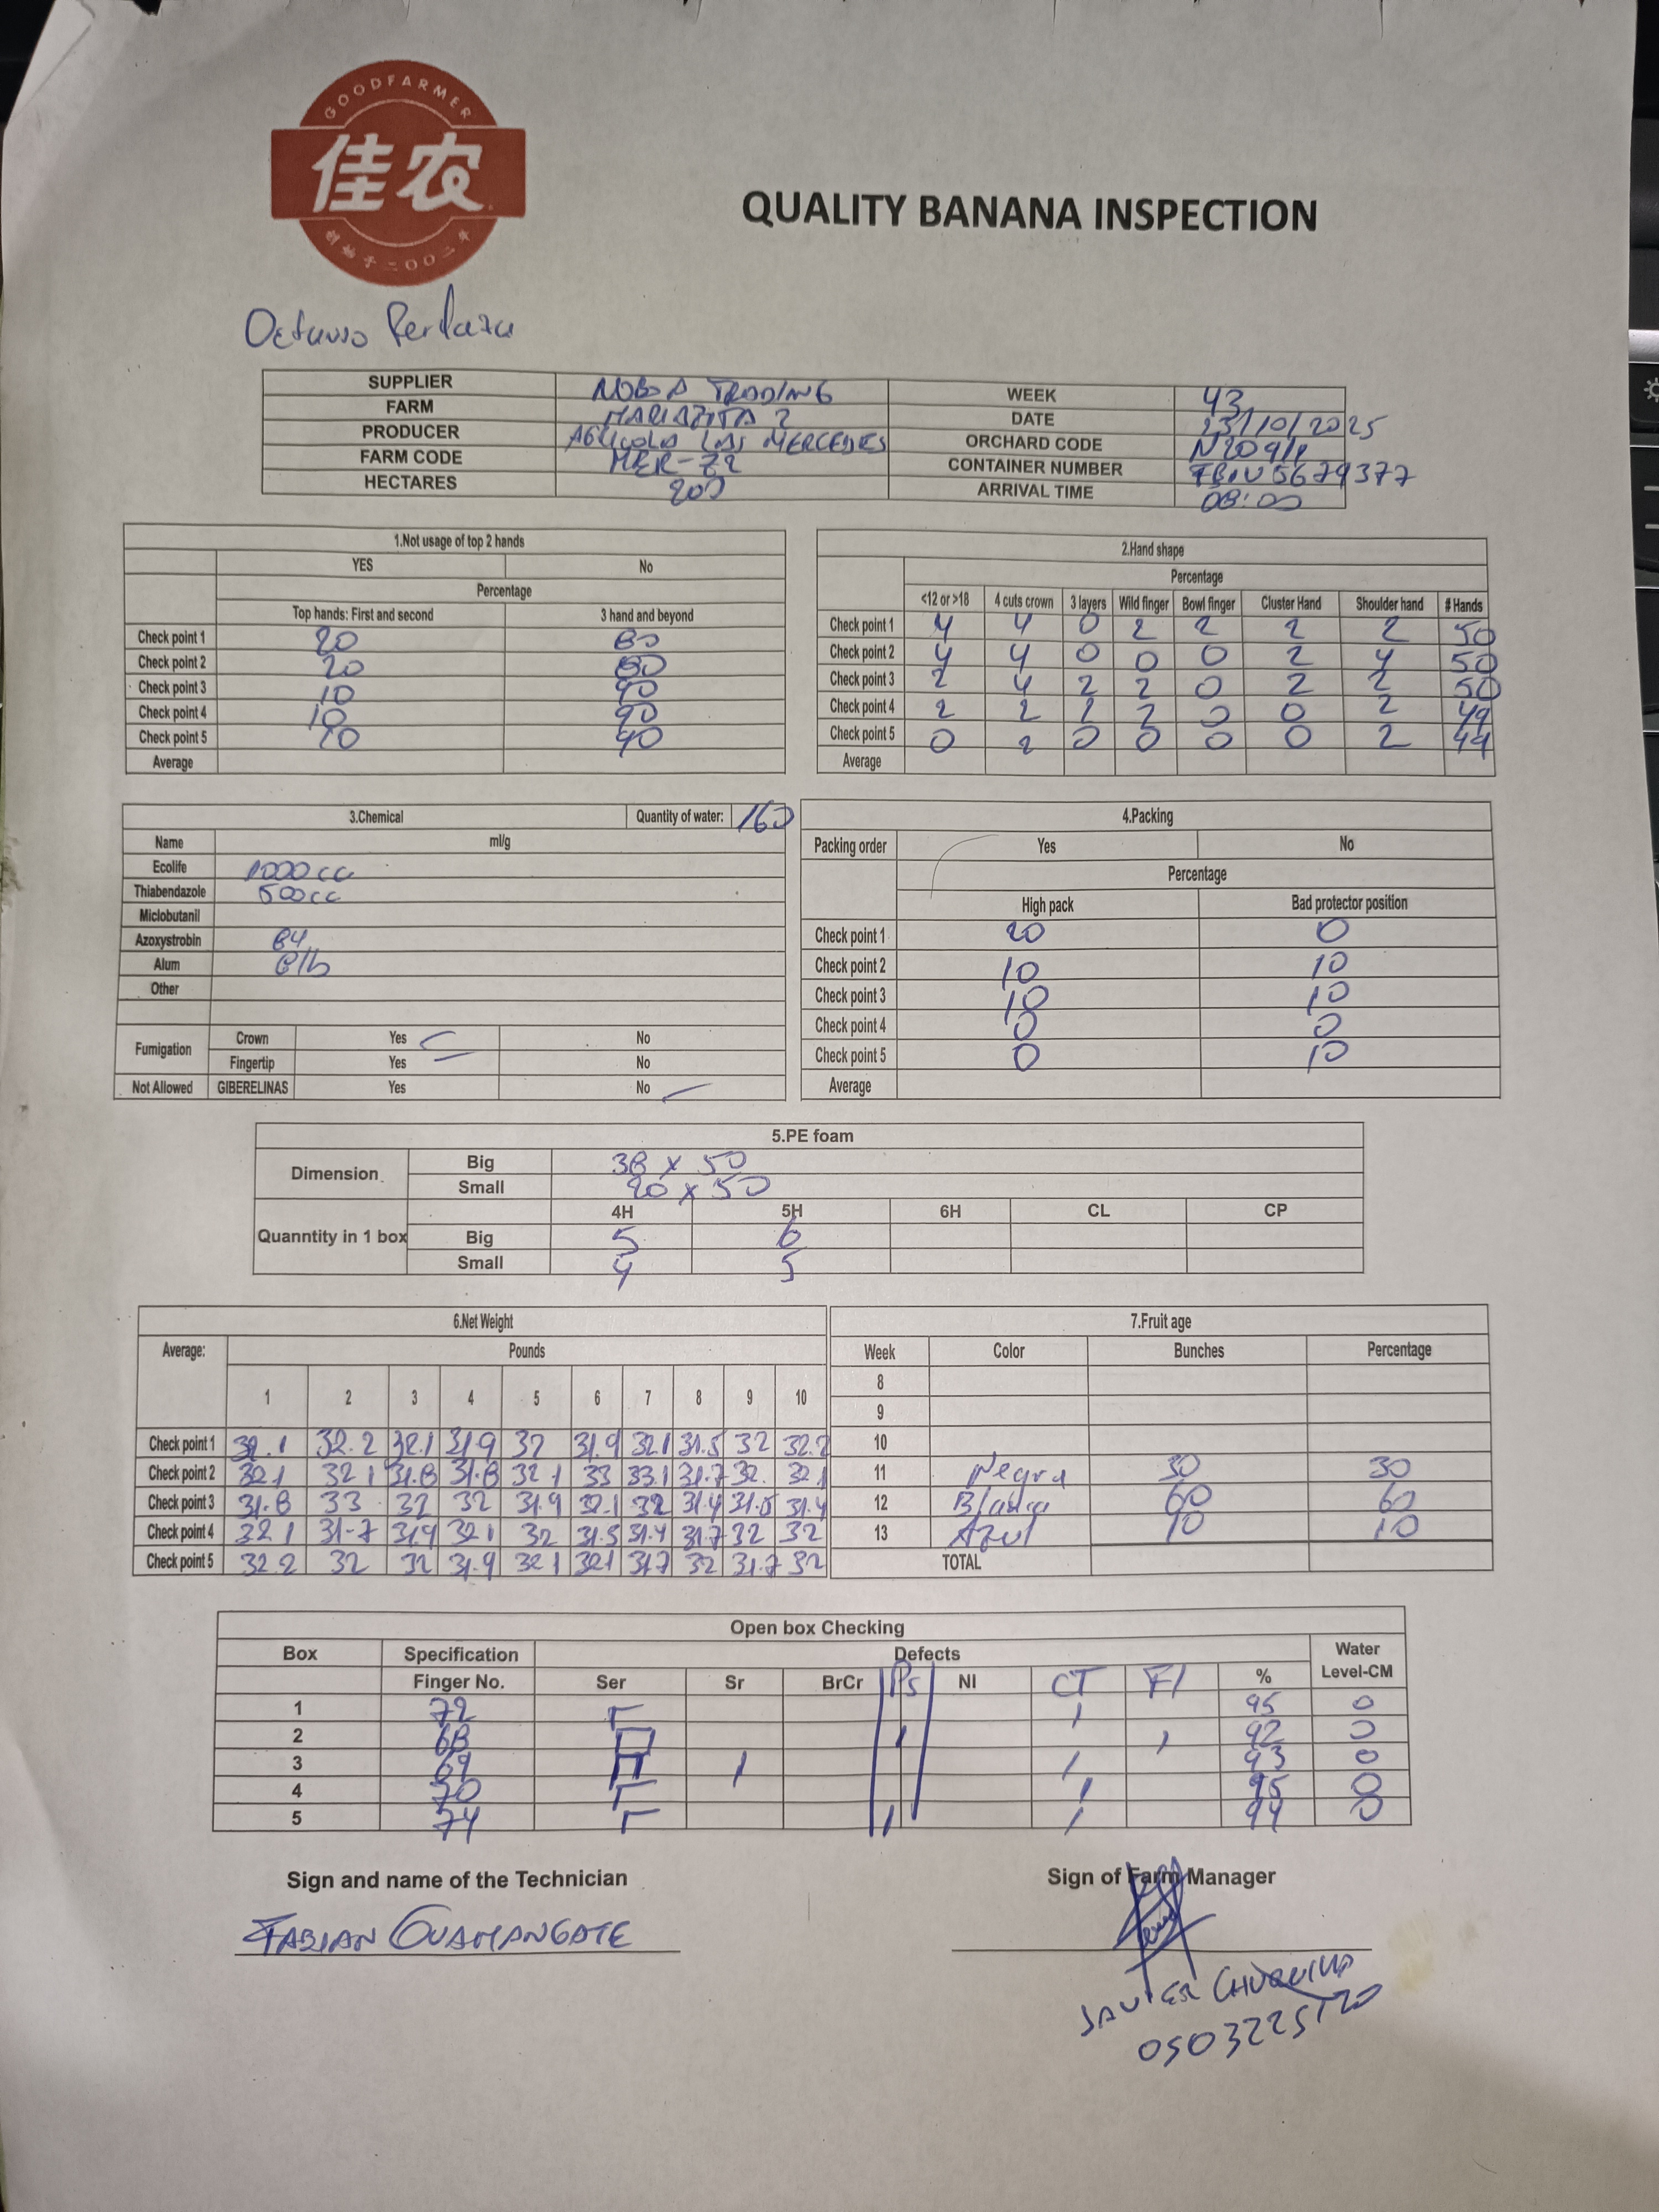 GOODFARMER
佳农
创始于二〇〇二年
QUALITY BANANA INSPECTION
SUPPLIER NOBOA TRADING WEEK 43
FARM MARIAZITA 2 DATE 23/10/2025
PRODUCER AGRICOLA LAS MERCEDES ORCHARD CODE
FARM CODE MER-72 CONTAINER NUMBER
HECTARES 200 ARRIVAL TIME 08:00
1.Not usage of top 2 hands
YES No
Percentage
Top hands: First and second 3 hand and beyond
Check point 1 20 80
Check point 2 20 80
Check point 3 10 90
Check point 4 10 90
Check point 5 10 90
Average
2.Hand shape
Percentage
<12 or >18 4 cuts crown 3 layers Wild finger Bowl finger Cluster Hand Shoulder hand # Hands
Check point 1 4 4 0 2 2 2 2 50
Check point 2 4 4 0 0 0 2 4 50
Check point 3 2 4 2 2 0 2 2 50
Check point 4 2 2 2 2 0 0 2 49
Check point 5 0 2 0 0 0 0 2 49
Average
3.Chemical Quantity of water: 160
Name ml/g
Ecolife 1000cc
Thiabendazole 500cc
Miclobutanil
Azoxystrobin 84
Alum 8lb
Other
Fumigation Crown Yes No
Fingertip Yes No
Not Allowed GIBERELINAS Yes No
4.Packing
Packing order Yes No
Percentage
High pack Bad protector position
Check point 1 20 0
Check point 2 10 10
Check point 3 10 10
Check point 4 0 0
Check point 5 0 10
Average
5.PE foam
Dimension Big 38 x 50
Small 20 x 50
4H 5H 6H CL CP
Quanntity in 1 box Big 5 6
Small 4 5
6.Net Weight
Average: Pounds
1 2 3 4 5 6 7 8 9 10
Check point 1 32.1 32.2 32.1 31.9 32 31.9 32.1 31.5 32 32.2
Check point 2 32.1 32.1 31.8 31.8 32.1 33 33.1 31.7 32. 32.1
Check point 3 31.8 33 32 32 31.9 32.1 32 31.4 31.8 31.4
Check point 4 32.1 31.7 31.9 32.1 32 31.5 31.4 31.7 32 32
Check point 5 32.2 32 32 31.9 32.1 32.1 31.7 32 31.7 32
7.Fruit age
Week Color Bunches Percentage
8
9
10
11 Negra 30 30
12 Blanca 60 60
13 Azul 10 10
TOTAL
Open box Checking
Box Specification Defects Water
Finger No. Ser Sr BrCr Ps NI CT FI % Level-CM
1 72 95 0
2 68 92 0
3 69 93 0
4 70 95 0
5 74 94 0
Sign and name of the Technician Sign of Farm Manager
FABIAN GUAMANGATE
JAVIER